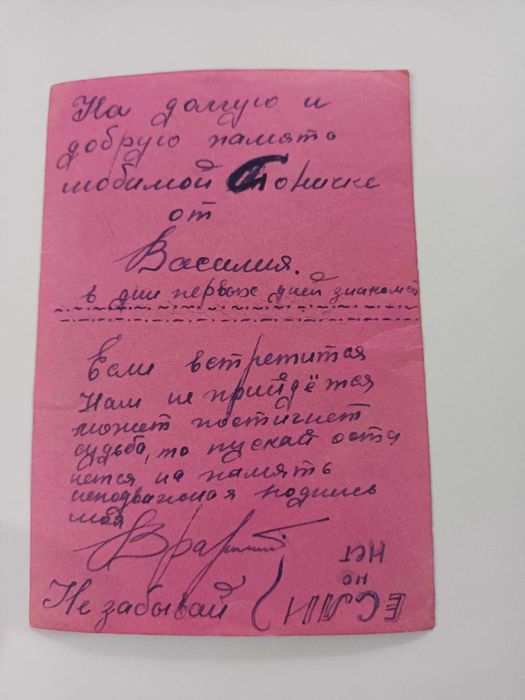 На долгую и
добрую память
любимой Тоничке
от
Василия.
в дни первых дней знакомст
Если встретится
Нам не прийдётся
может постигнет
судьба, то пускай оста
нется на память
неподважная подпись
моя
Не забывай
ЕСЛИ
но
Нет